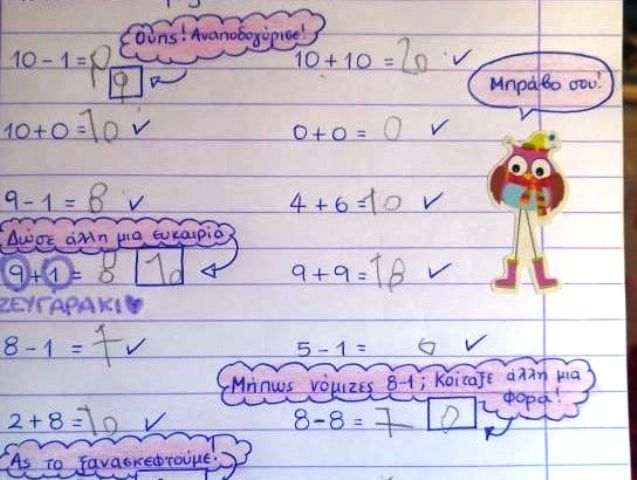 Ούπς! Αναποδογύρισε!
10-1=9 10+10=20 ✓
9
Μπράβο σου!
10+0=10 ✓ 0+0=0 ✓
9-1=8 ✓ 4+6=10 ✓
Δώσε άλλη μια ευκαιρία
9+1=8 10 9+9=18 ✓
ΖΕΥΓΑΡΑΚΙ
8-1=7 ✓ 5-1= ✓
Μήπως νόμιζες 8-1; Κοίταξε άλλη μια
φορά!
2+8=10 ✓ 8-8=7 0
Ας το ξανασκεφτούμε.